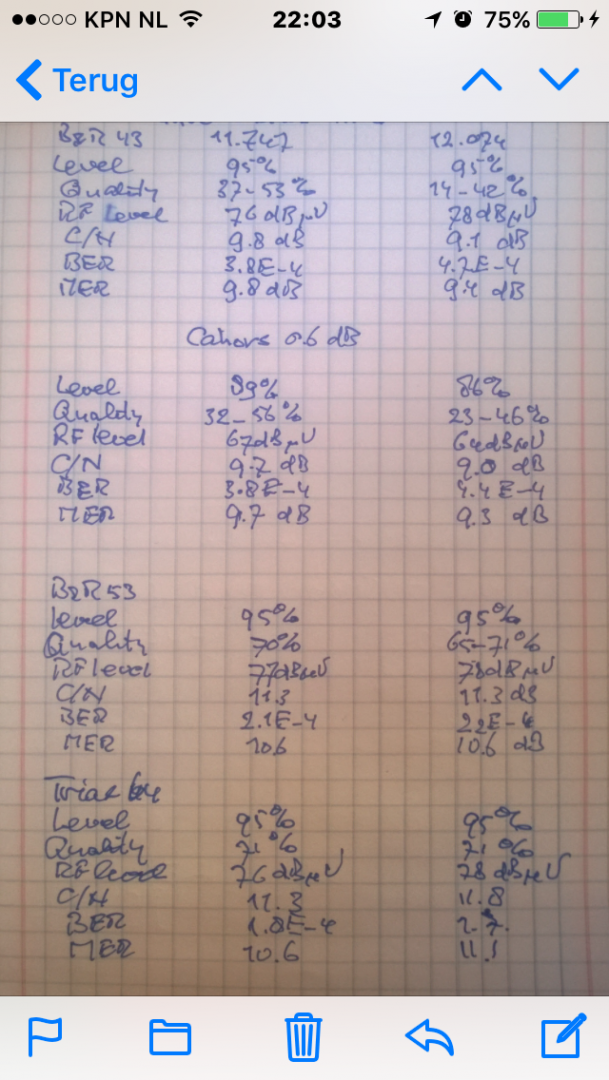 KPN NL 22:03 75%
Terug
B2R 43 11.747 12.074
Level 95% 95%
Quality 37-53% 14-42%
RF Level 76 dBµV 78 dBµV
C/N 9.8 dB 9.1 dB
BER 3.8E-4 4.7E-4
MER 9.8 dB 9.4 dB
Cahors 0.6 dB
Level 89% 86%
Quality 32-56% 23-46%
RF level 67dBµV 64dBµV
C/N 9.7 dB 9.0 dB
BER 3.8E-4 4.4E-4
MER 9.7 dB 9.3 dB
B2R 53
Level 95% 95%
Quality 70% 65-71%
RF level 77dBµV 78dBµV
C/N 11.3 11.3 dB
BER 2.1E-4 2.2E-4
MER 10.6 10.6 dB
Triax
Level 95% 95%
Quality 71% 71%
RF level 76 dBµV 78 dBµV
C/N 11.3 11.8
BER 1.8E-4
MER 10.6 11.1